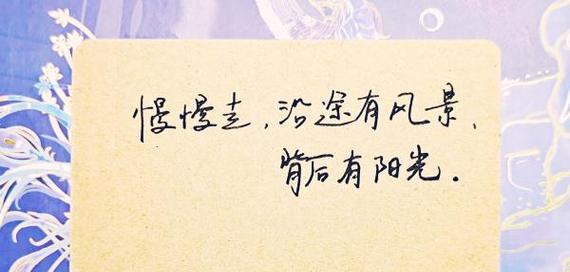 慢慢走,沿途有风景,
背后有阳光.